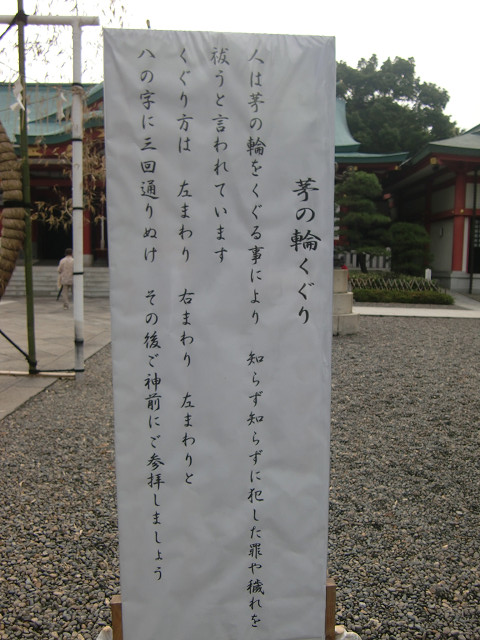 茅の輪くぐり
人は茅の輪をくぐる事により 知らず知らずに犯した罪や穢れを
祓うと言われています
くぐり方は 左まわり 右まわり 左まわりと
八の字に三回通りぬけ その後ご神前にご参拝しましょう